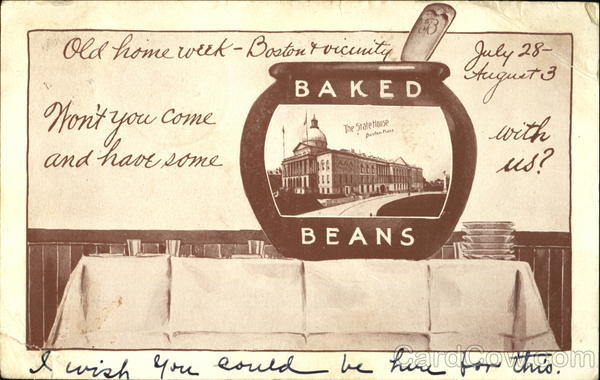 Old home week - Boston & vicinity
July 28-
August 3
B
BAKED
Won't you come
and have some
The State House
Boston Mass
with
us?
BEANS
I wish you could be here for this.
CardCow.com